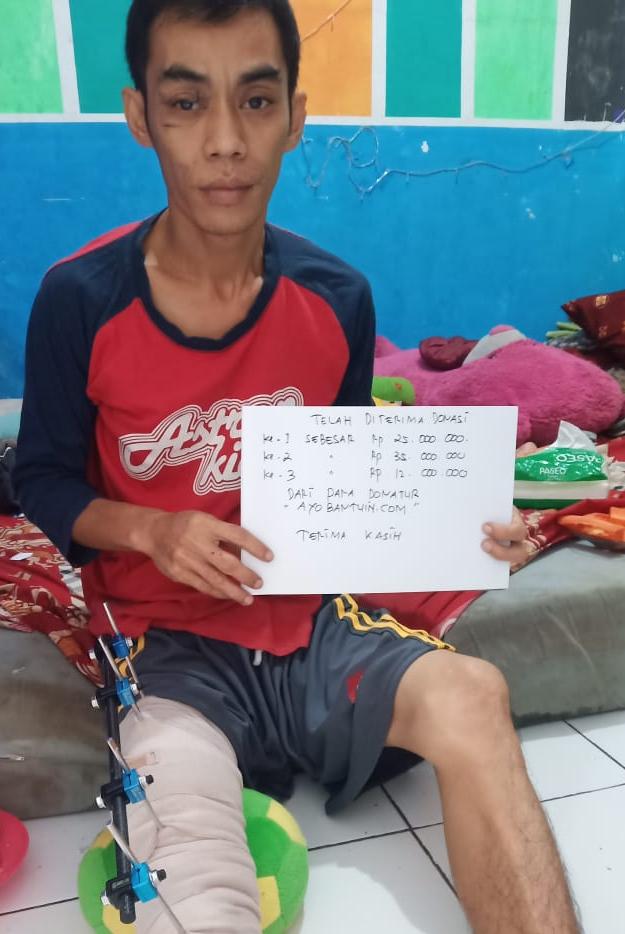 TELAH DITERIMA DONASI
ke-1 SEBESAR Rp 25.000.000.
ke-2 " Rp 35.000.000
ke-3 " Rp 12.000.000
DARI PARA DONATUR
"AYOBANTUIN.COM"
TERIMA KASIH
PASEO
PASEO